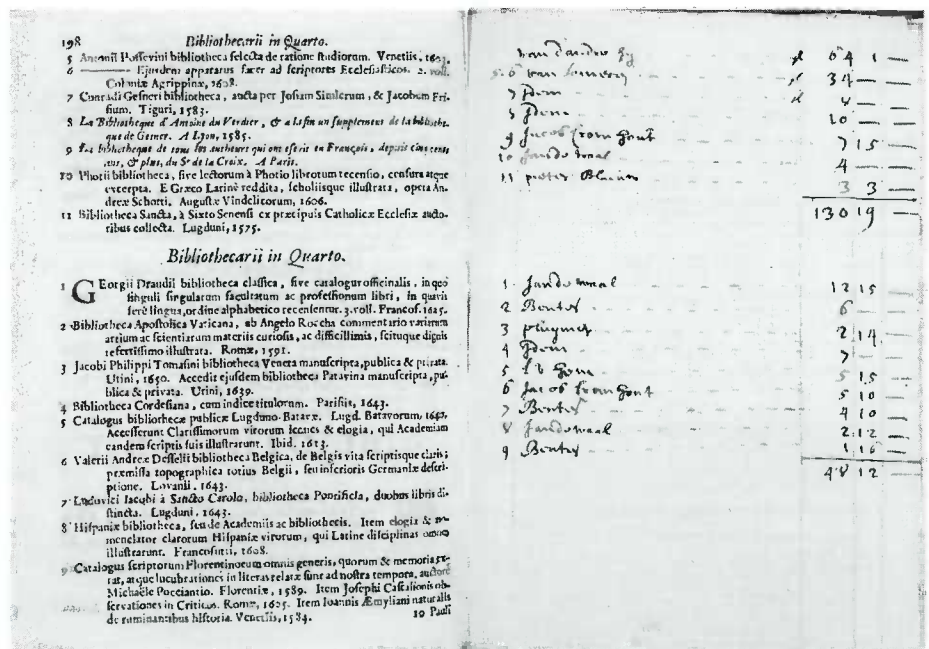 198 Bibliothecarii in Quarto.
5 Antonii Possevini bibliotheca selecta de ratione studiorum. Venetiis, 1603.
6 ——— Ejusdem apparatus sacer ad scriptores Ecclesiasticos. 2. voll.
Coloniæ Agrippinæ, 1608.
7 Conradi Gesneri bibliotheca, aucta per Josiam Simlerum, & Jacobum Fri-
sium. Tiguri, 1583.
8 La Bibliotheque d'Antoine du Verdier, & a la fin un supplement de la bibliothe-
que de Gesner. A Lyon, 1585.
9 La bibliotheque de tous les autheurs qui ont escrit en François, depuis cinq cens
ans, & plus, du Sr de la Croix. A Paris.
10 Photii bibliotheca, sive lectorum à Photio librorum recensio, censura atque
excerpta. E Græco Latinè reddita, scholiisque illustrata, opera An-
dreæ Schotti. Augustæ Vindelicorum, 1606.
11 Bibliotheca Sancta, à Sixto Senensi ex præcipuis Catholicæ Ecclesiæ aucto-
ribus collecta. Lugduni, 1575.
Bibliothecarii in Quarto.
1 GEorgii Draudii bibliotheca classica, sive catalogus officinalis, in quo
singuli singularum facultatum ac professionum libri, in quavis
ferè lingua, ordine alphabetico recensentur. 3. voll. Francof. 1625.
2 Bibliotheca Apostolica Vaticana, ab Angelo Roccha commentario variarum
artium ac scientiarum materiis curiosis, ac difficillimis, scituque dignis
refertissimo illustrata. Romæ, 1591.
3 Jacobi Philippi Tomasini bibliotheca Veneta manuscripta, publica & privata.
Utini, 1650. Accedit ejusdem bibliotheca Patavina manuscripta, pu-
blica & privata. Utini, 1639.
4 Bibliotheca Cordesiana, cum indice titulorum. Parisiis, 1643.
5 Catalogus bibliothecæ publicæ Lugduno-Batavæ. Lugd. Batavorum, 1640.
Accesserunt Clarissimorum virorum icones & elogia, qui Academiam
eandem scriptis suis illustrarunt. Ibid. 1613.
6 Valerii Andreæ Desselii bibliotheca Belgica, de Belgis vita scriptisque claris;
præmissa topographica totius Belgii, seu inferioris Germaniæ descri-
ptione. Lovanii. 1643.
7 Ludovici Iacobi à Sancto Carolo, bibliotheca Pontificia, duobus libris di-
stincta. Lugduni, 1643.
8 Hispaniæ bibliotheca, seu de Academiis ac bibliothecis. Item elogia & no-
menclator clarorum Hispaniæ virorum, qui Latine disciplinas omnes
illustrarunt. Francofurti, 1608.
9 Catalogus scriptorum Florentinorum omnis generis, quorum & memoria ex-
tat, atque lucubrationes in literas relatæ sunt ad nostra tempora, auctore
Michaële Pocciantio. Florentiæ, 1589. Item Josephi Castalionis ob-
servationes in Criticos. Romæ, 1605. Item Ioannis Æmyliani naturalis
de ruminantibus historia. Venetiis, 1584.
10 Pauli
64 1 —
5. 6 van 34 —
7 Idem 4 —
8 Idem 10 —
9 Jacob 7 15 —
10 4 —
11 pieter Blaeuw 3 3 —
130 19 —
1 12 15 —
2 Bentes 6 —
3 2 14 —
4 Idem 7 —
5 5 15 —
6 Jacob 5 10 —
7 Bentes 4 10 —
8 2 12 —
9 Bentes 1 16 —
48 12 —